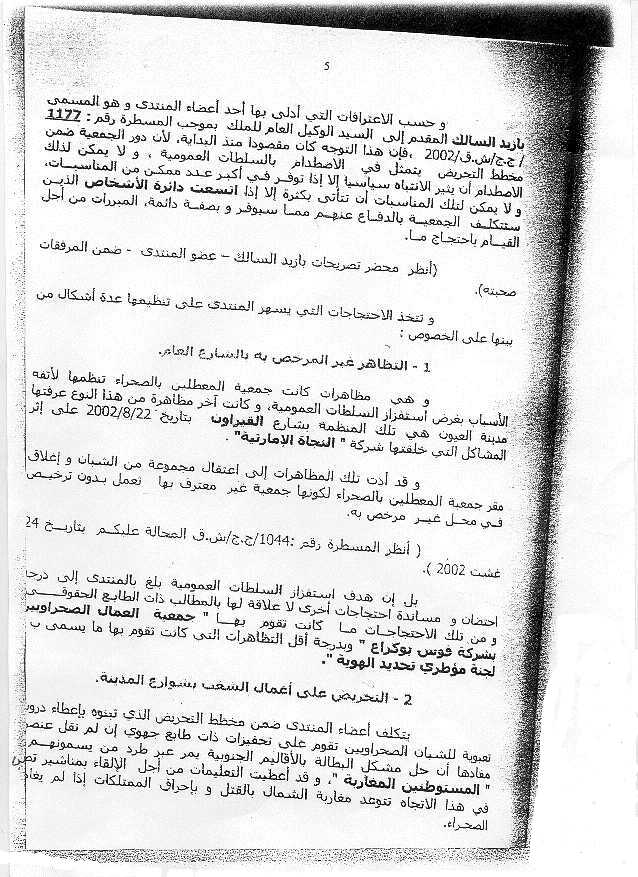 5
و حسب الاعترافات التي أدلى بها أحد أعضاء المنتدى و هو المسمى
بازيد السالك المقدم إلى السيد الوكيل العام للملك بموجب المسطرة رقم : 1177
/ج.ج/ش.ق/2002 ، فإن هذا التوجه كان مقصودا منذ البداية، لأن دور الجمعية ضمن
مخطط التحريض يتمثل في الاصطدام بالسلطات العمومية ، و لا يمكن لذلك
الاصطدام أن يثير الانتباه سياسيا إلا إذا توفر في أكبر عدد ممكن من المناسبات،
و لا يمكن لتلك المناسبات أن تتأتى بكثرة إلا إذا اتسعت دائرة الأشخاص الذين
ستتكلف الجمعية بالدفاع عنهم مما سيوفر و بصفة دائمة، المبررات من أجل
القيام باحتجاج ما.
(أنظر محضر تصريحات بازيد السالك – عضو المنتدى - ضمن المرفقات
صحبته).
و تتخذ الاحتجاجات التي يسهر المنتدى على تنظيمها عدة أشكال من
بينها على الخصوص :
1 - التظاهر غير المرخص به بالشارع العام.
و هي مظاهرات كانت جمعية المعطلين بالصحراء تنظمها لأتفه
الأسباب بغرض استفزاز السلطات العمومية، و كانت آخر مظاهرة من هذا النوع عرفتها
مدينة العيون هي تلك المنظمة بشارع القيراون بتاريخ 2002/8/22 على إثر
المشاكل التي خلفتها شركة " النجاة الإمارتية" .
و قد أدت تلك المظاهرات إلى اعتقال مجموعة من الشبان و إغلاق
مقر جمعية المعطلين بالصحراء لكونها جمعية غير معترف بها تعمل بدون ترخيص
في محل غير مرخص به.
( أنظر المسطرة رقم :1044/ج.ج/ش.ق المحالة عليكم بتاريخ 24
غشت 2002 ).
بل إن هدف استفزاز السلطات العمومية بلغ بالمنتدى إلى درجة
احتضان و مساندة احتجاجات أخرى لا علاقة لها بالمطالب ذات الطابع الحقوقي
و من تلك الاحتجاجات ما كانت تقوم بها " جمعية العمال الصحراويين
بشركة فوس بوكراع " وبدرجة أقل التظاهرات التي كانت تقوم بها ما يسمى ب
لجنة مؤطري تحديد الهوية ".
2 - التحريض على أعمال الشغب بشوارع المدينة.
يتكلف أعضاء المنتدى ضمن مخطط التحريض الذي تبنوه بإعطاء دروس
تعبوية للشبان الصحراويين تقوم على تحفيزات ذات طابع جهوي إن لم نقل
مفادها أن حل مشكل البطالة بالأقاليم الجنوبية يمر عبر طرد من يسمونهم
" المستوطنين المغاربة "، و قد أعطيت التعليمات من أجل الإلقاء بمناشير
في هذا الاتجاه تتوعد مغاربة الشمال بالقتل و بإحراق الممتلكات إذا لم
الصحراء.